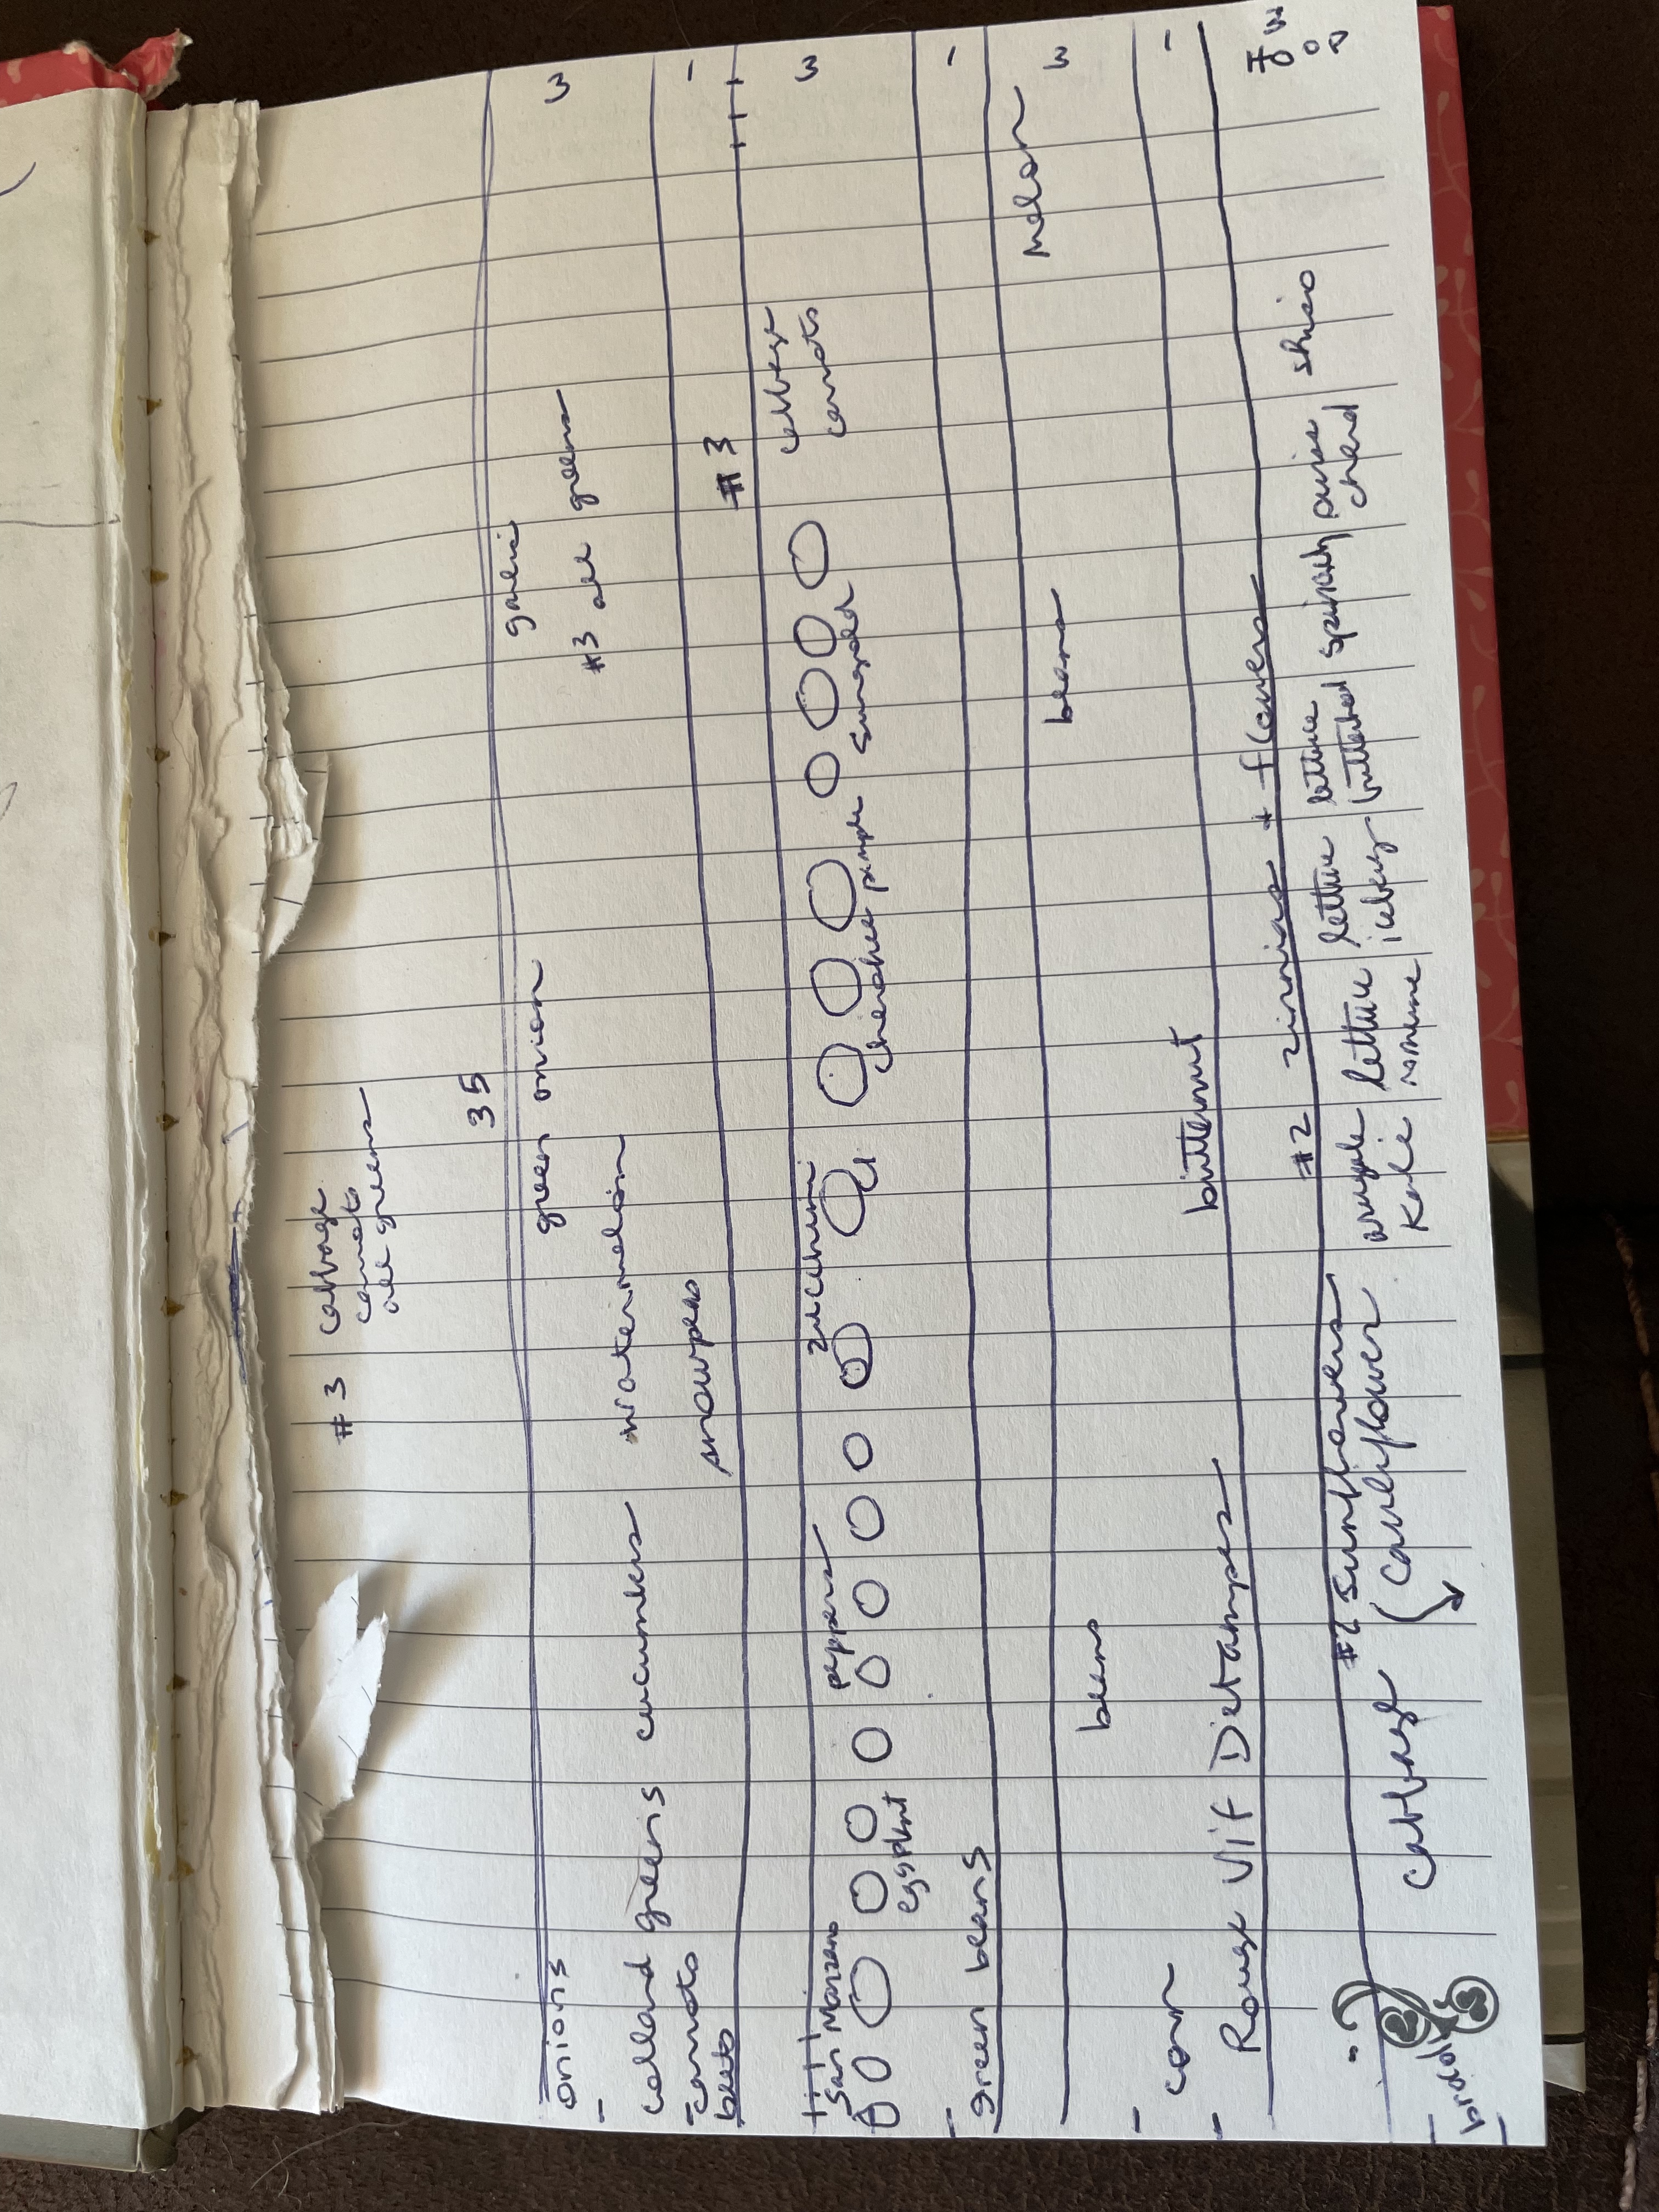 #3 cabbage
carrots
all greens
35
onions green onion garlic 3
collard greens cucumbers watermelon #3 all greens
carrots snowpeas 1
beets #3
San Marzano peppers zucchini cabbage 3
carrots
eggplant Cherokee purple Sungold
green beans 1
beans beans melon 3
corn butternut 1
Rouge Vif Detampes
#2 sunflowers #2 zinnias + flowers
cabbage cauliflower arugula lettuce lettuce lettuce spinach swiss shiso
kale romaine iceberg butterhead chard